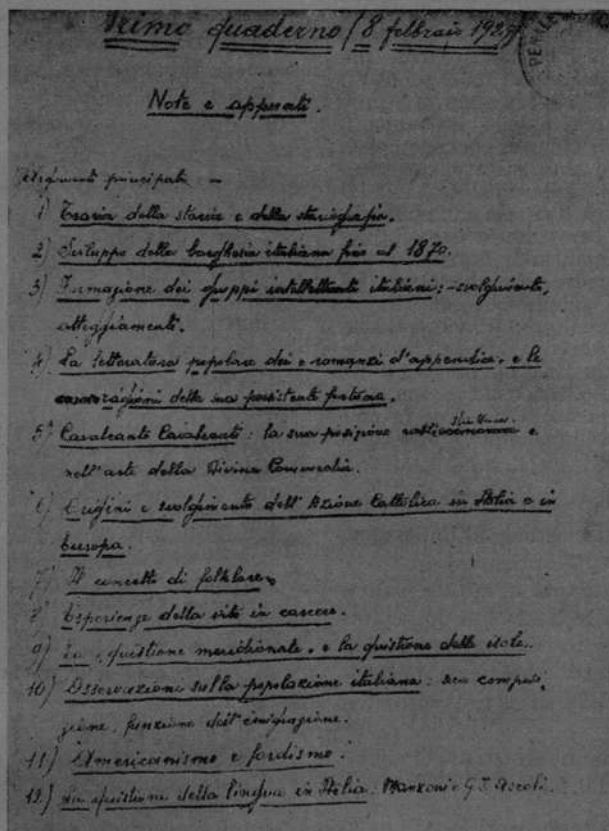 Primo quaderno (8 febbraio 1929)
Note e appunti.
Argomenti principali: —
1) Teoria della storia e della storiografia.
2) Sviluppo della borghesia italiana fino al 1870.
3) Formazione dei gruppi intellettuali italiani: - svolgimento,
atteggiamenti.
4) La letteratura popolare dei «romanzi d'appendice» e le
ragioni della sua persistente fortuna.
5) Cavalcante Cavalcanti: la sua posizione nella struttura e
nell'arte della Divina Commedia.
6) Origini e svolgimento dell'Azione Cattolica in Italia e in
Europa.
7) Il concetto di folklore.
8) Esperienze della vita in carcere.
9) La «quistione meridionale» e la quistione delle isole.
10) Osservazioni sulla popolazione italiana: sua composi-
zione, funzione dell'emigrazione.
11) Americanismo e fordismo.
12) La quistione della lingua in Italia: Manzoni e G. I. Ascoli.